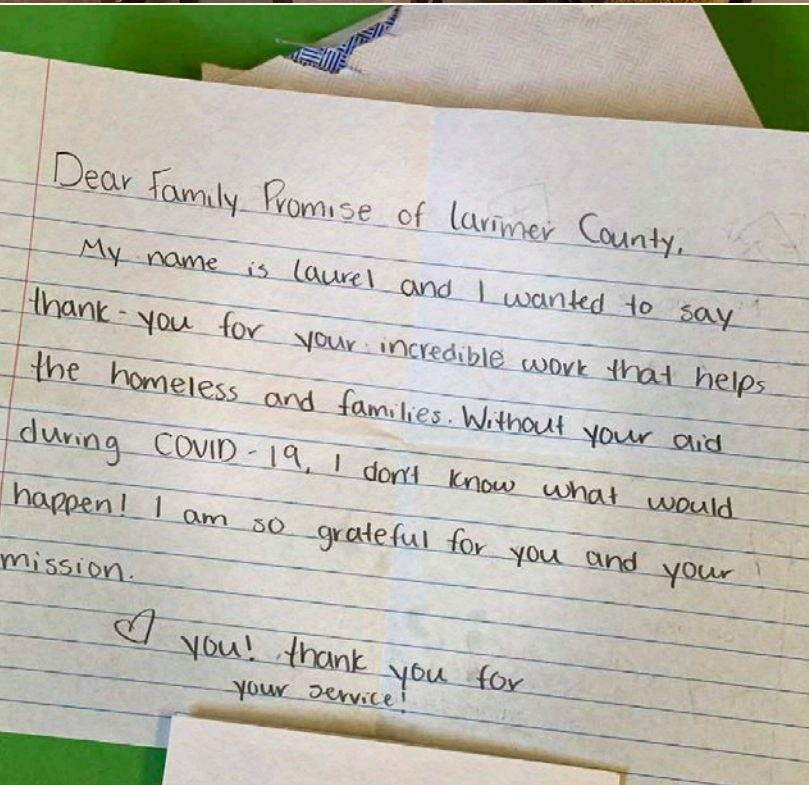 Dear Family Promise of Larimer County,
My name is Laurel and I wanted to say
thank-you for your incredible work that helps
the homeless and families. Without your aid
during COVID-19, I don't know what would
happen! I am so grateful for you and your
mission.
♡ you! thank you for
your service!